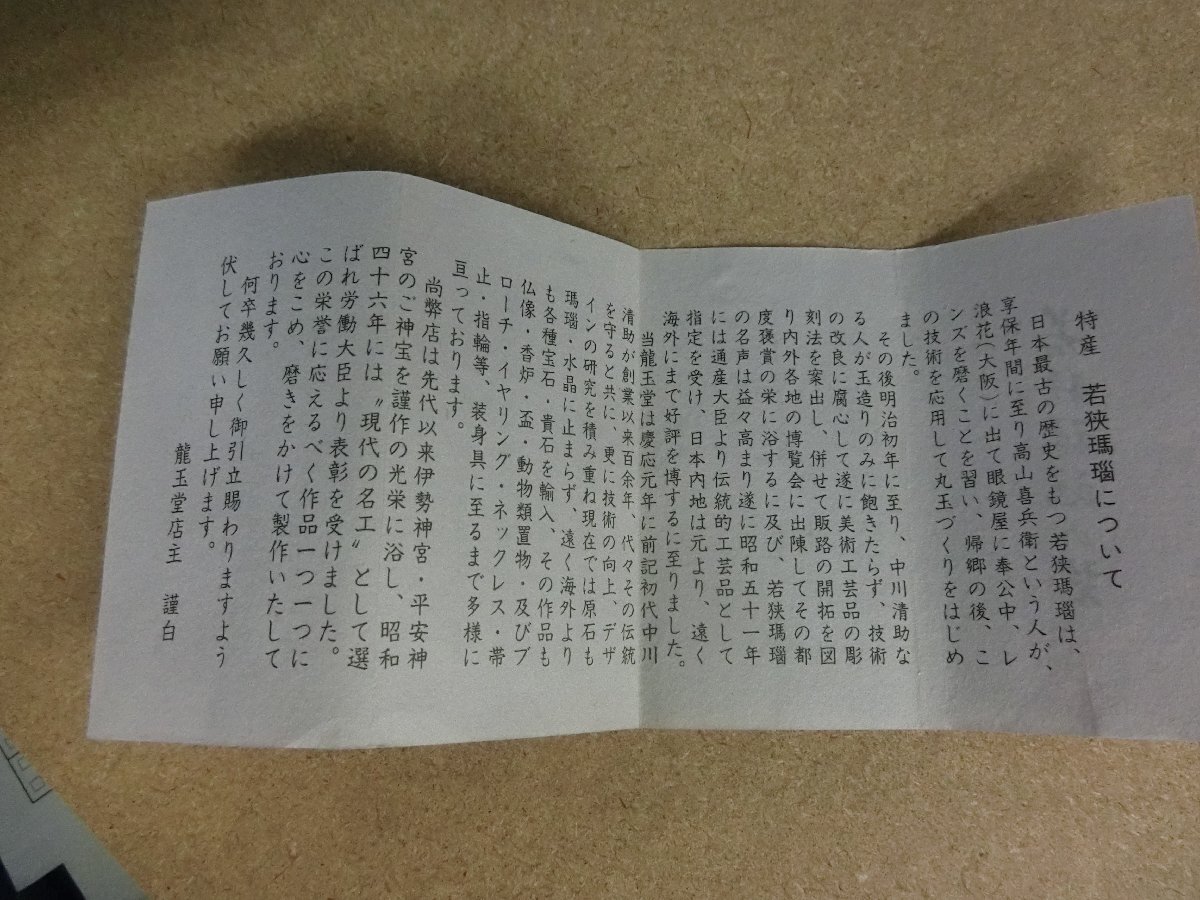 特産　若狭瑪瑙について
日本最古の歴史をもつ若狭瑪瑙は、
享保年間に至り高山喜兵衛という人が、
浪花(大阪)に出て眼鏡屋に奉公中、レ
ンズを磨くことを習い、帰郷の後、こ
の技術を応用して丸玉づくりをはじめ
ました。
その後明治初年に至り、中川清助な
る人が玉造りのみに飽きたらず、技術
の改良に腐心して遂に美術工芸品の彫
刻法を案出し、併せて販路の開拓を図
り内外各地の博覧会に出陳してその都
度褒賞の栄に浴するに及び、若狭瑪瑙
の名声は益々高まり遂に昭和五十一年
には通産大臣より伝統的工芸品として
指定を受け、日本内地は元より、遠く
海外にまで好評を博するに至りました。
当龍玉堂は慶応元年に前記初代中川
清助が創業以来百余年、代々その伝統
を守ると共に、更に技術の向上、デザ
インの研究を積み重ね現在では原石も
瑪瑙・水晶に止まらず、遠く海外より
も各種宝石・貴石を輸入、その作品も
仏像・香炉・盃・動物類置物・及びブ
ローチ・イヤリング・ネックレス・帯
止・指輪等、装身具に至るまで多様に
亘っております。
尚弊店は先代以来伊勢神宮・平安神
宮のご神宝を謹作の光栄に浴し、昭和
四十六年には〝現代の名工〟として選
ばれ労働大臣より表彰を受けました。
この栄誉に応えるべく作品一つ一つに
心をこめ、磨きをかけて製作いたして
おります。
何卒幾久しく御引立賜わりますよう
伏してお願い申し上げます。
龍玉堂店主　謹白